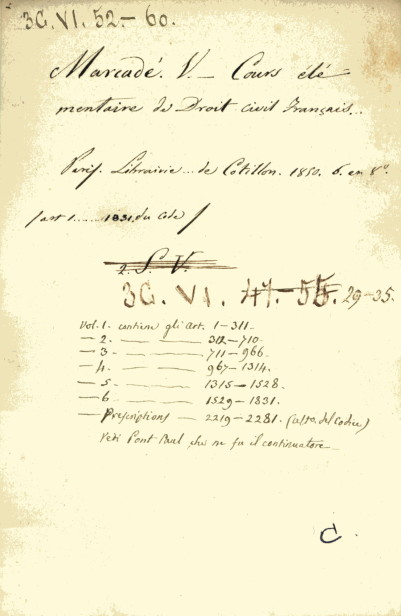 3G. VI. 52.- 60.
Marcadé. V. — Cours élé
mentaire de Droit civil Français...
Paris. Librairie... de Cotillon. 1850. 6. en 8º
(art 1....... 1831. du code)
2. S. V.
3G. VI. 47.-55. 29-35.
Vol. 1. contiene gli Art. 1-311-
— 2. — 312-710-
— 3 — 711-966-
— 4. — 967-1314.
— 5 — 1315-1528-
— 6 — 1529-1831.
— Prescriptions — 2219-2281. ( del Codice)
Vedi Pont Paul che ne fu il continuatore
C